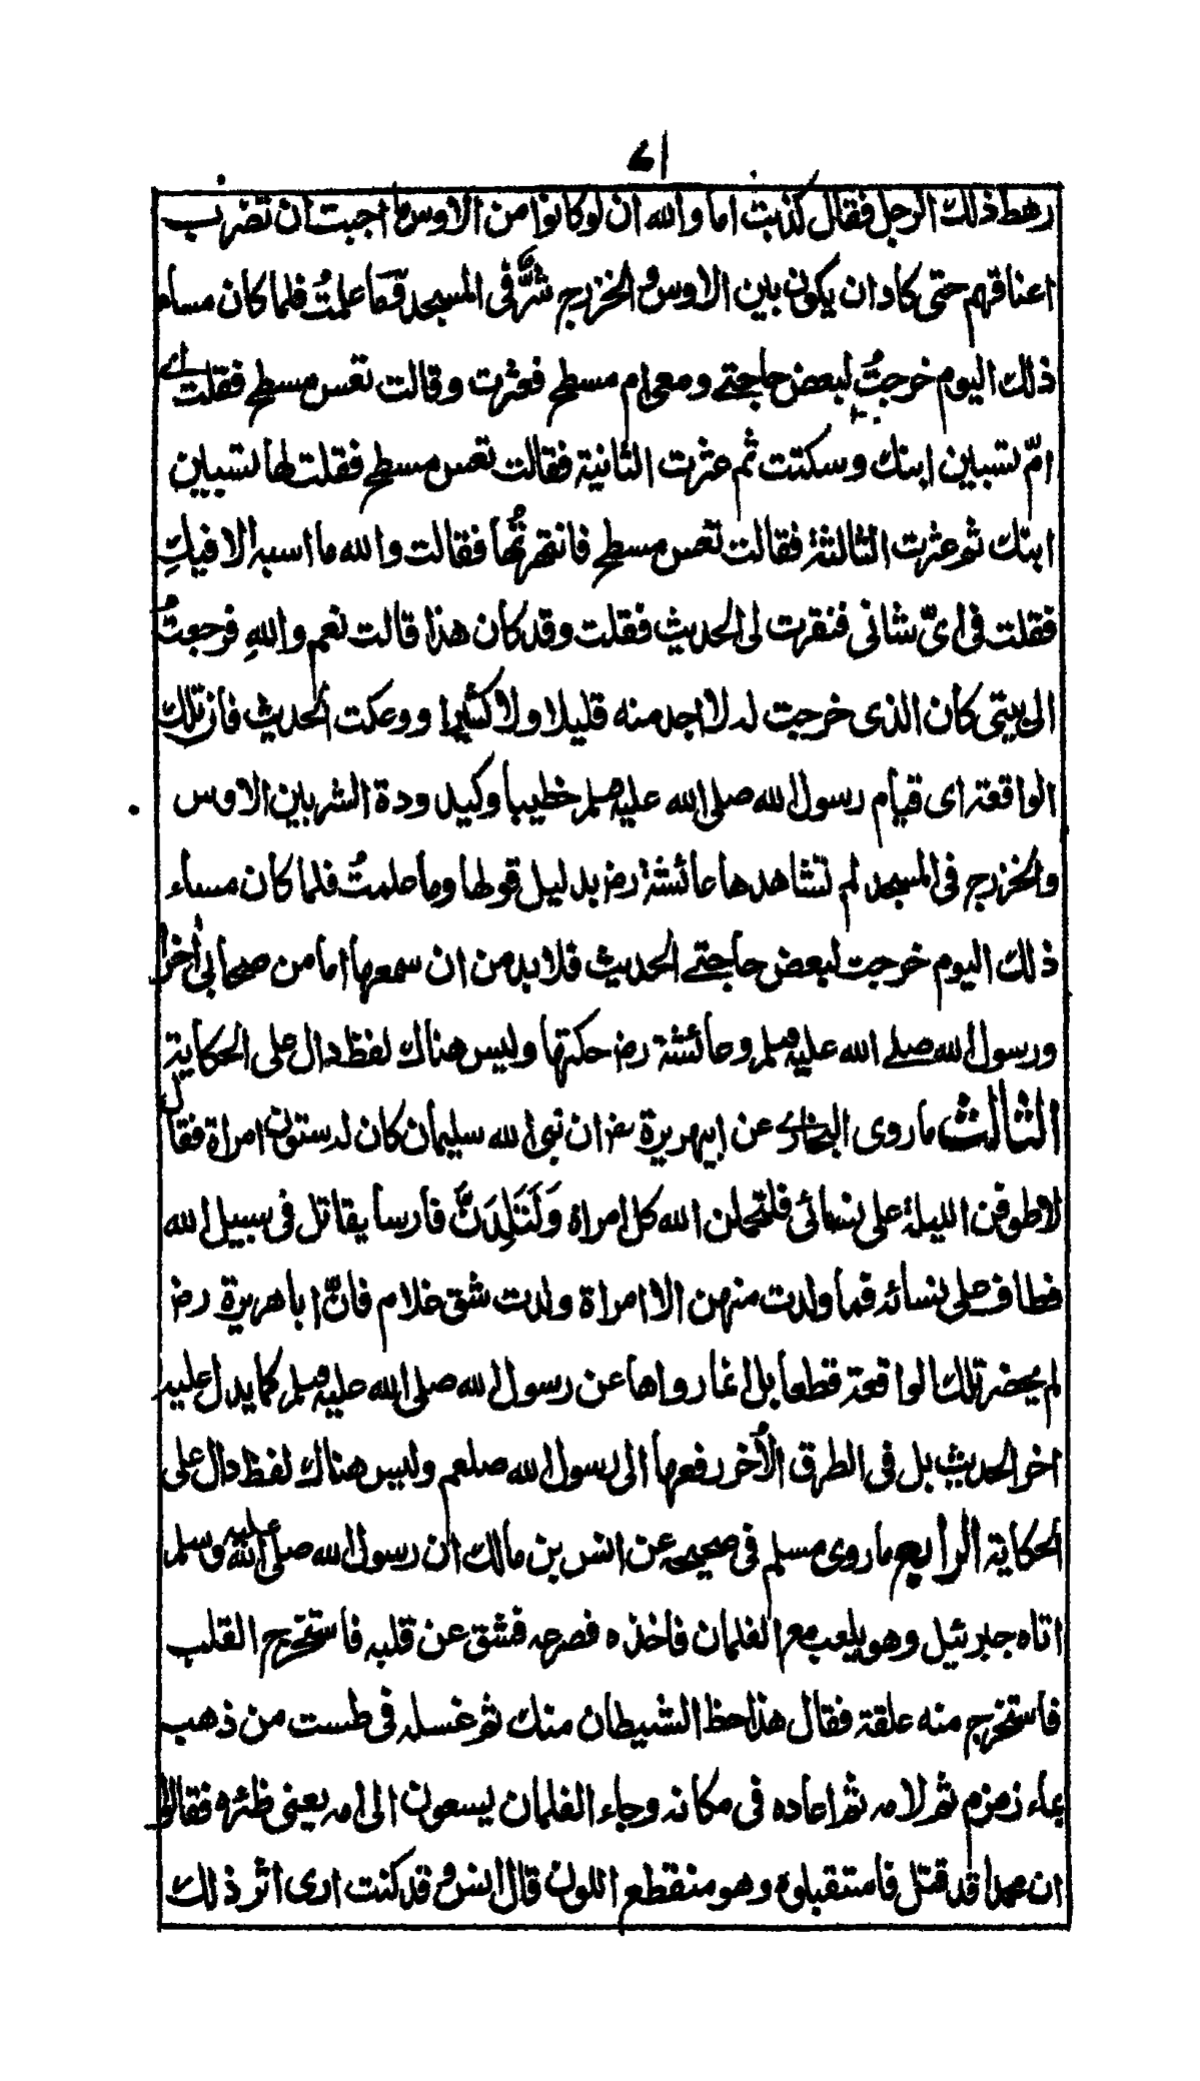 رهط ذلك الرجل فقال كذبت اما والله ان لو كانوا من الاوس ما احببت ان تضرب
اعناقهم حتى كاد ان يكون بين الاوس و الخزرج شرٌّ فى المسجد وَمَا علمتُ فلما كان مساء
ذلك اليوم خرجتُ لبعض حاجتے ومعى ام مسطح فعثرت وقالت تعس مسطح فقلت اے
امّ تسبين ابنك وسكتت ثم عثرت الثانية فقالت تعس مسطح فقلت لها تسبين
ابنك ثم عثرت الثالثة فقالت تعس مسطح فانتهرتُها فقالت والله ما اسبه الا فيكِ
فقلت فى اىّ شانى فنقرت لى الحديث فقلت وقد كان هذا قالت نعم واللهِ فرجعتُ
الى بيتى كأن الذى خرجت له لا اجد منه قليلا ولا كثيرا ووعكت الحديث فان تلك
الواقعة اى قيام رسول الله صلى الله عليه وسلم خطيبا وكيدودة الشر بين الاوس
والخزرج فى المسجد لم تشاهدها عائشة رض بدليل قولها وما علمتُ فلما كان مساء
ذلك اليوم خرجت لبعض حاجتے الحديث فلا بد من ان سمعها اما من صحابى أخر
ورسول الله صلے الله عليه وسلم وعائشة رض حكتها وليس هناك لفظ دال على الحكاية
الثالث ما روى البخارے عن ابيهريرة رض ان نبى الله سليمان كان له ستون امراة فقال
لاطوفن الليلة على نسائى فلتحملن الله كل امراة وَلَتَلِدَنَّ فارسا يقاتل فى سبيل الله
فطاف على نسائه فما ولدت منهن الا امراة ولدت شق غلام فانّ ابا هريرة رض
لم يحضر تلك الواقعة قطعا بل انما رواها عن رسول الله صلى الله عليه وسلم كما يدل عليه
اخر الحديث بل فى الطرق الأخر رفعها الى رسول الله صلعم وليس هناك لفظ دال على
الحكاية الرابع ما روى مسلم فى صحيحه عن انس بن مالك ان رسول الله صلى الله عليه وسلم
اتاه جبرئيل وهو يلعب مع الغلمان فاخذه فصرعه فشق عن قلبه فاستخرج القلب
فاستخرج منه علقة فقال هذا حظ الشيطان منك ثم غسله فى طست من ذهب
بماء زمزم ثم لامه ثم اعاده فى مكانه وجاء الغلمان يسعون الى امه يعنى ظئره فقالوا
ان محمدا قد قتل فاستقبلوه وهو منتقطع اللون قال انس و قد كنت ارى اثر ذلك